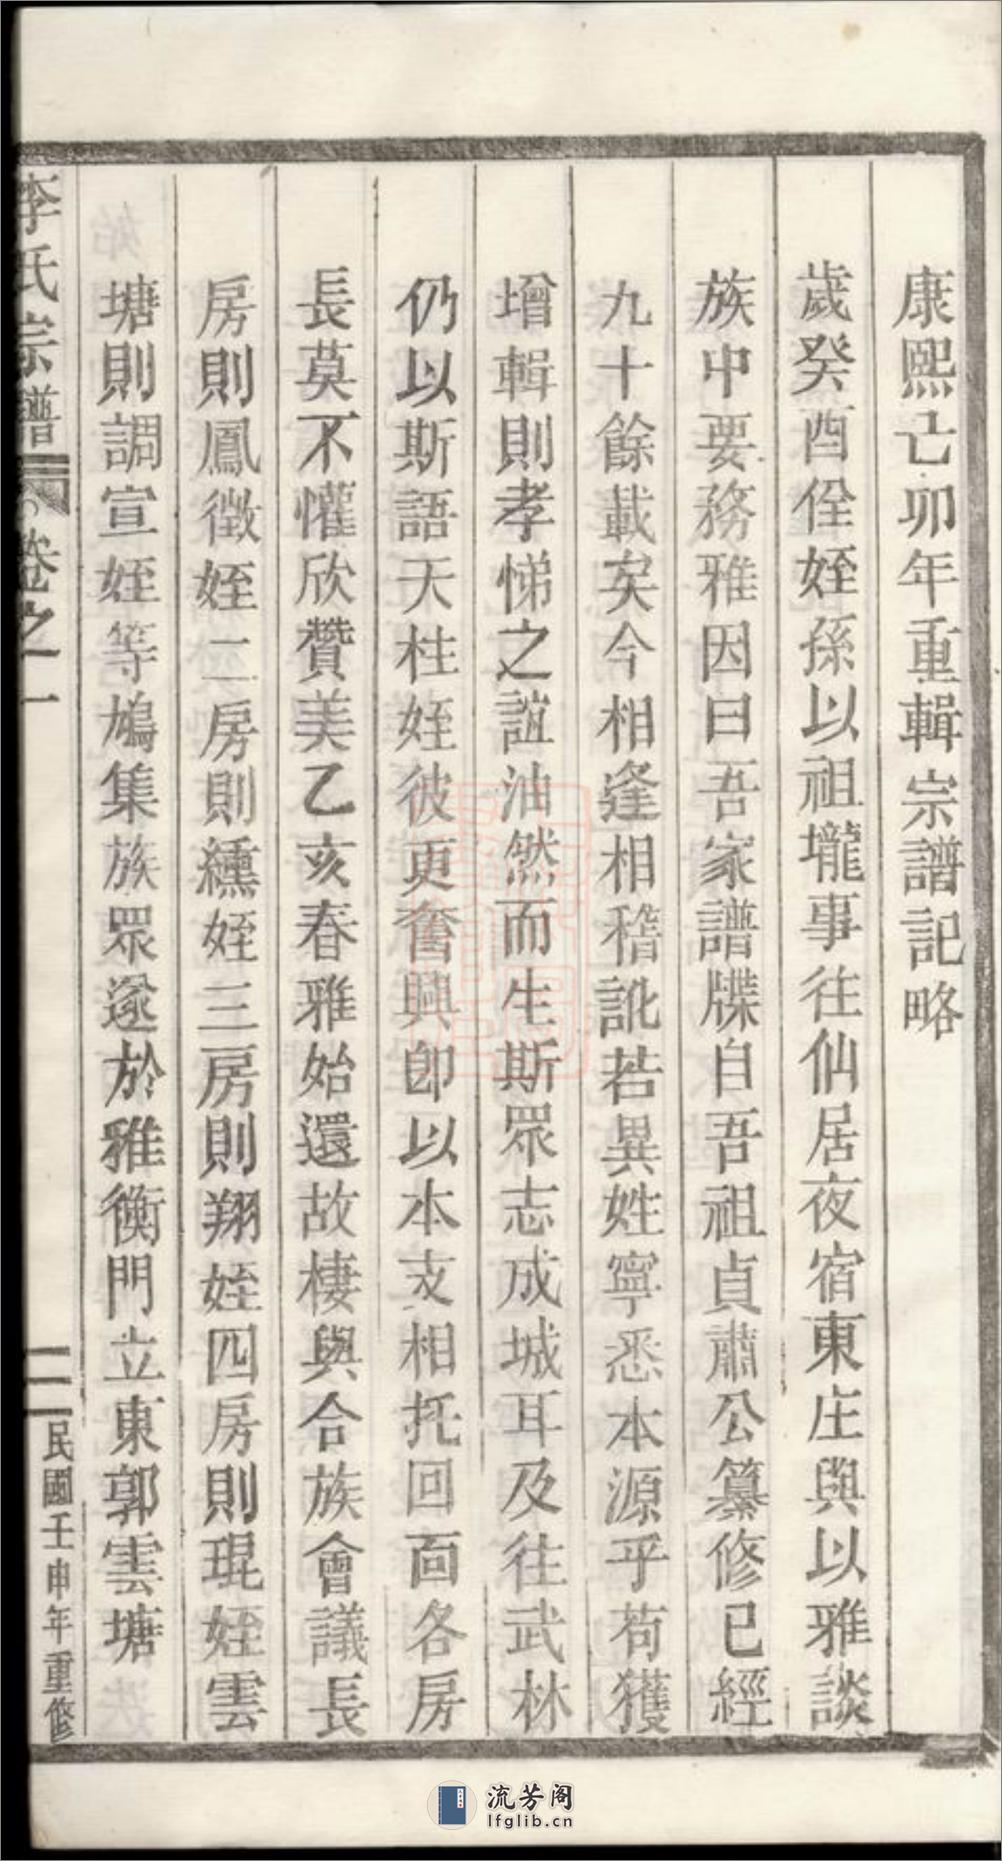 康熙亡卯年重輯宗譜記略
歲癸酉佺姪孫以祖壠事往仙居夜宿東庄與以雅談
族中要務雅因曰吾家譜牒自吾祖貞肅公纂修已經
九十餘載矣今相逢相稽訛若異姓寧悉本源乎苟獲
增輯則孝悌之誼油然而生斯眾志成城耳及往武林
仍以斯語天柱姪彼更奮興卽以本支相托回面各房
長莫不懽欣贊美乙亥春雅始還故棲與合族會議長
房則鳳徵姪二房則纁姪三房則翔姪四房則琨姪雲
塘則調宣姪等鳩集族眾遂於雅衡門立東郭雲塘
李氏宗譜 卷之一 二 民國壬申年重修
流芳阁
lfglib.cn